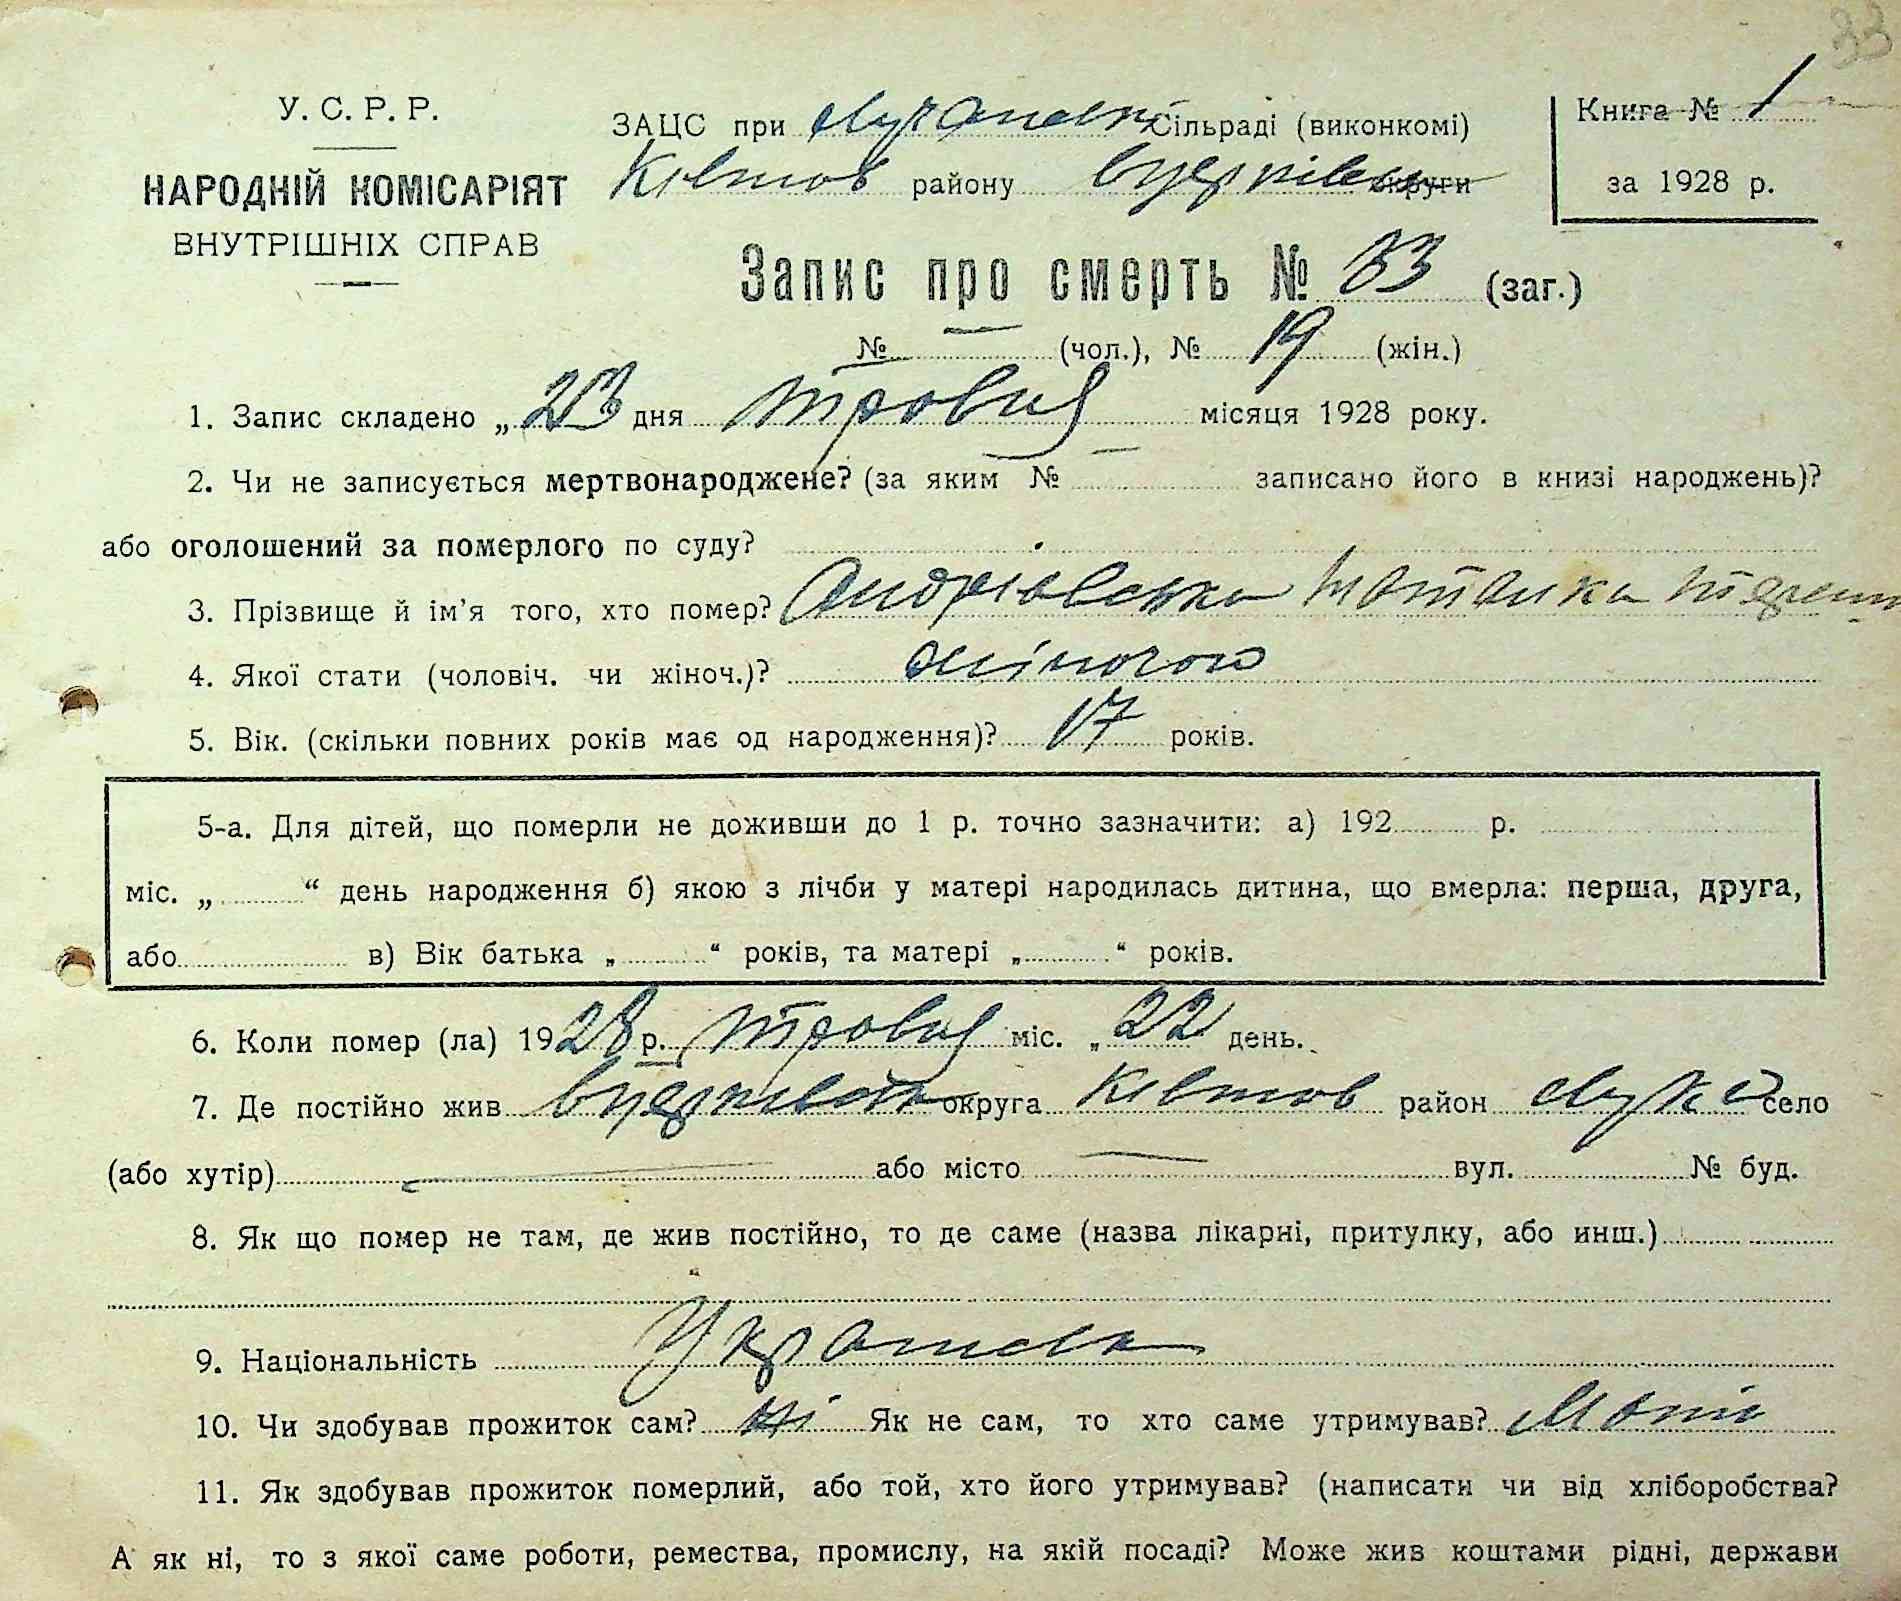 У. С. Р. Р.
НАРОДНІЙ КОМІСАРІЯТ
ВНУТРІШНІХ СПРАВ
ЗАЦС при Сільраді (виконкомі)
району округи
Книга № 1
за 1928 р.
Запис про смерть № 33 (заг.)
№ — (чол.), № 19 (жін.)
1. Запис складено „ 23 дня травня місяця 1928 року.
2. Чи не записується мертвонароджене? (за яким № — записано його в книзі народжень)?
або оголошений за померлого по суду?
3. Прізвище й ім'я того, хто помер? Андріевська
4. Якої стати (чоловіч. чи жіноч.)? жіночою
5. Вік. (скільки повних років має од народження)? 17 років.
5-а. Для дітей, що померли не доживши до 1 р. точно зазначити: а) 192 р.
міс. „ “ день народження б) якою з лічби у матері народилась дитина, що вмерла: перша, друга,
або в) Вік батька „ “ років, та матері „ “ років.
6. Коли помер (ла) 1928 р. травня міс. „ 22 день.
7. Де постійно жив округа район село
(або хутір) — або місто — вул. № буд.
8. Як що помер не там, де жив постійно, то де саме (назва лікарні, притулку, або инш.)
9. Національність
10. Чи здобував прожиток сам? ні Як не сам, то хто саме утримував?
11. Як здобував прожиток померлий, або той, хто його утримував? (написати чи від хліборобства?
А як ні, то з якої саме роботи, ремества, промислу, на якій посаді? Може жив коштами рідні, держави